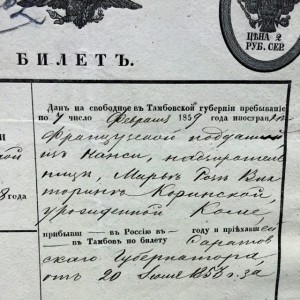 ЦѢНА 2
РУБ. СЕР.
БИЛЕТЪ.
Данъ на свободное въ Тамбовской губерніи пребываніе
по 7 число Февраля 1859 года иностран
Французской подданной
изъ Нанси, надзиратель
ницѣ, Марьѣ Розѣ Вик
торинѣ Коринской
урожденной Коме,
прибывш въ Россію въ году и пріѣхавшей
въ Тамбовъ по билету Саратов
скаго Губернатора,
отъ 20 Іюля 1858 г. за